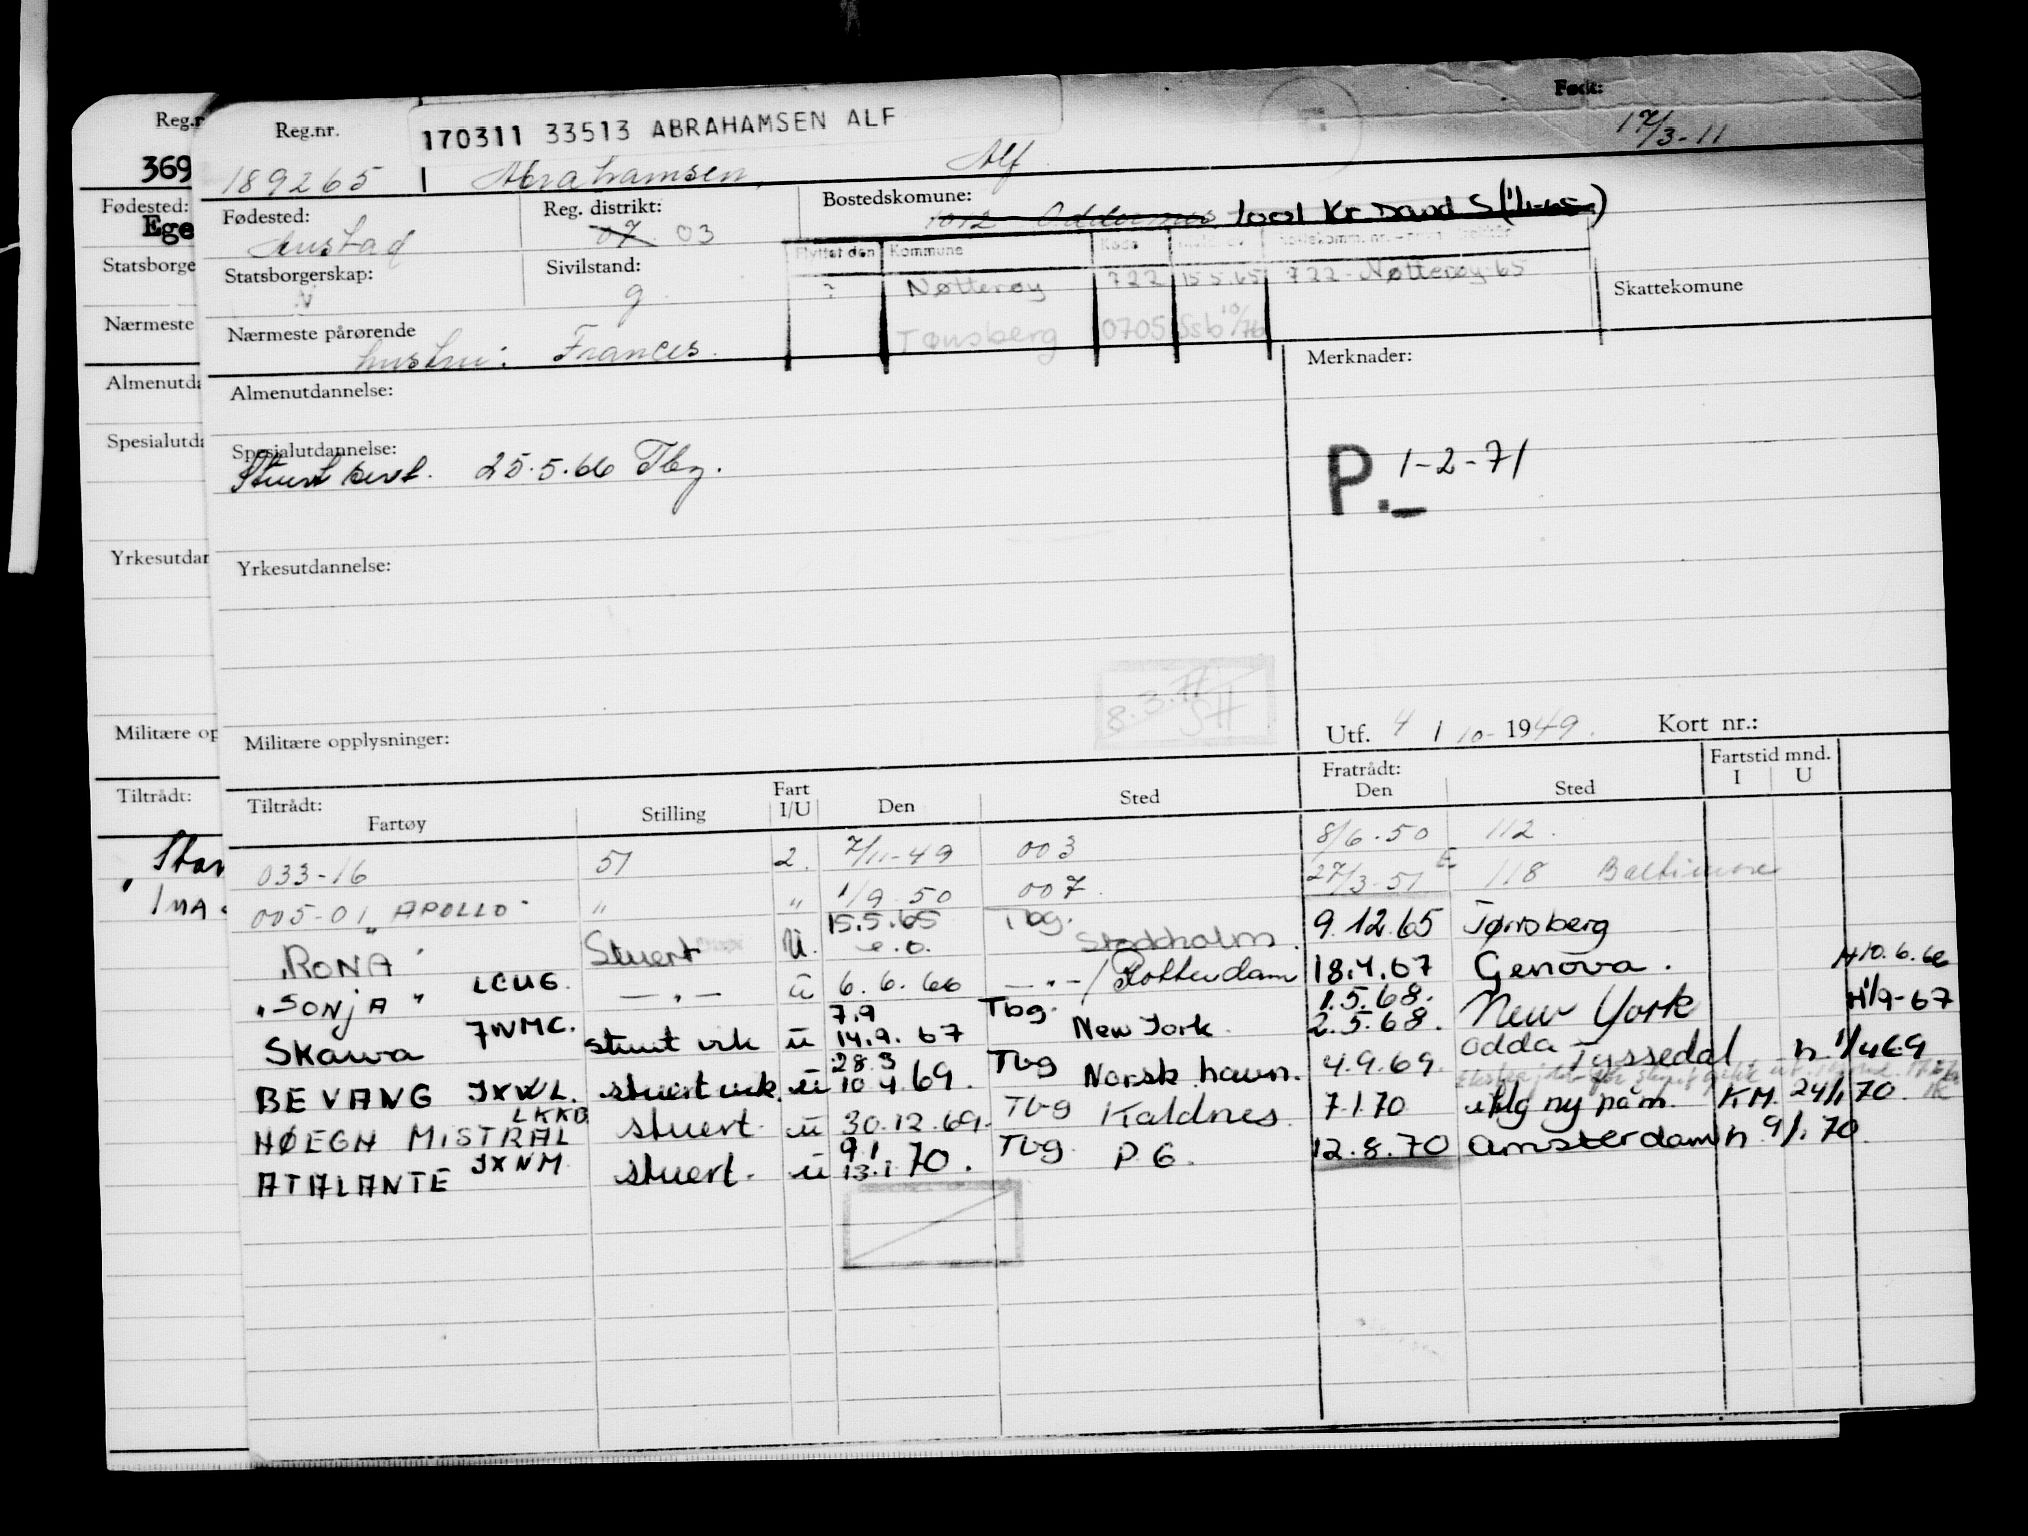 Reg.nr. 170311 33513 ABRAHAMSEN ALF Født:
189265 Abrahamsen, Alf 17/3-11
369
Fødested: Reg. distrikt: Bostedskomune:
Ege
07 03 1012 Oddernes 1001 Kr Sand S (1/1-65)
Statsborgerskap: Sivilstand: Flyttet den Kommune Kode
N g ? Nøtterøy 722 15.5.65 722-Nøtterøy-65
Skattekomune
Nærmeste pårørende Tønsberg 0705 Ssb 10/76
hustru: Frances.
Merknader:
Almenutdannelse:
Spesialutdannelse:
Stuert sert. 25.5.66 Tbg.
P. 1-2-71
Yrkesutdannelse:
8.3.77
SH
Utf. 4 / 10- 1949. Kort nr.:
Militære opplysninger:
Fartstid mnd.
Tiltrådt: Fart Fratrådt: I U
Fartøy Stilling I/U Den Sted Den Sted
033-16 51 2. 7/11-49 003 8/6.50 112.
005-01 "APOLLO" " " 1/9.50 007. 27/3-51 E 118 Baltimore
"RONA" Stuert U. 15.5.65 e.o. Tbg. Stockholm. 9.12.65 Tønsberg
"SONJA" LCUG. —"— u 6.6.66 —"—/Rotterdam 18.4.67 Genova. H 10.6.66
Skauva JWMC. stuert vik u 7.9 14.9.67 Tbg. New York. 1.5.68. 2.5.68. New York H 1/9-67
BEVANG JXWL. stuert vik. u 28.3 10.4.69. Tbg Norsk havn. 4.9.69. Odda Tyssedal h. 1/4 69
HØEGH MISTRAL LKKB stuert. u 30.12.69. Tbg Kaldnes 7.1.70 utlg ny påm. KM. 24/1 70.
ATALANTE JXNM stuert. u 9.1 13.1.70. Tbg. P.G. 12.8.70 Amsterdam h 9/1.70.
Reg.n
Fødested:
Statsborge
Nærmeste
Almenutda
Spesialutda
Yrkesutdar
Militære op
Tiltrådt: